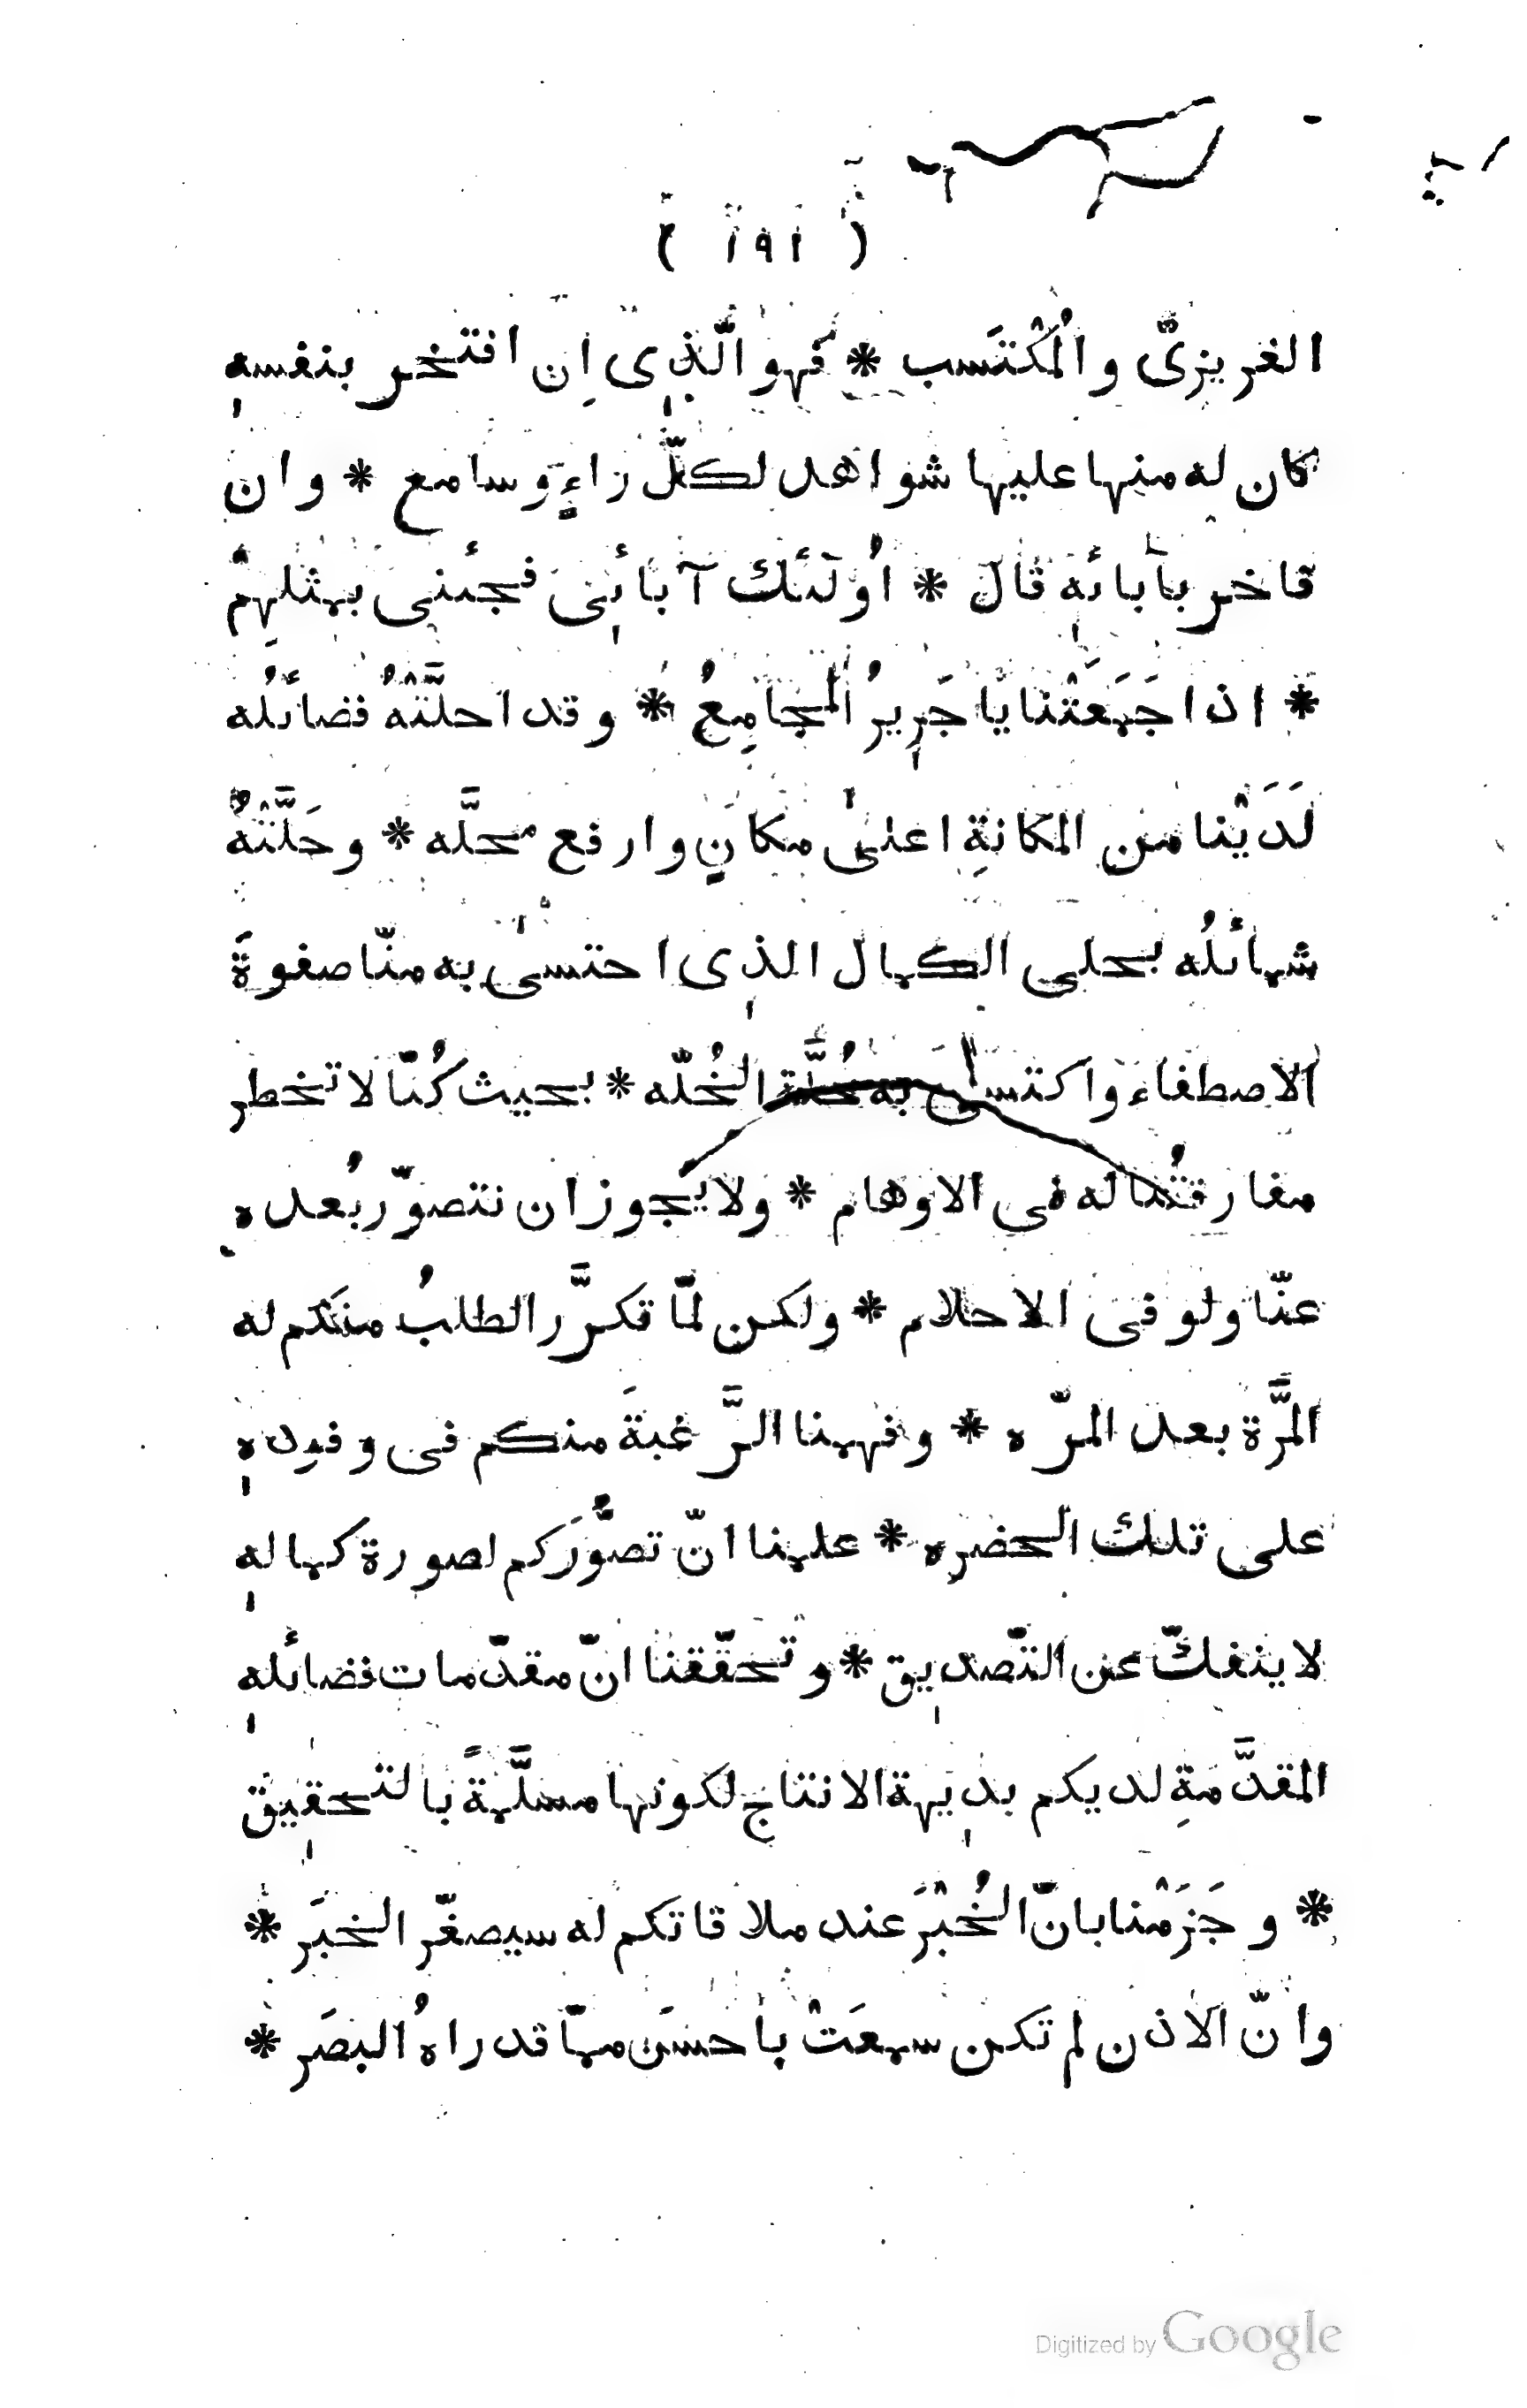 ( ١٩١ )
الغريزىّ والمُكْتَسب * فهو الّذِى اِن افتخر بنفسهٖ
كان له منها عليها شواهد لكلّ راءٍ وسامع * وان
فاخر بآبائه قال * اُولٓئك آبائى فجئنى بمثلهمْ
* اذا جَمَعَتْنا يا جَرِيرُ المجامِعُ * وقد احلَّتْهُ فضائلُه
لَدَيْنا من المكانةِ اعلىٰ مكانٍ وارفع محلَّه * وحَلَّتْهُ
شمائلُه بحلى الكمال الذى احتسىٰ به منّا صفوةَ
الاصطفاء واكتسىٰ به حُلَّة الخُلّه * بحيث كُنّا لا تخطر
مفارقتُنا له فى الاوهام * ولا يجوز ان نتصوّر بُعده
عنّا ولو فى الاحلام * ولكن لمّا تكرَّر الطلبُ منكم له
المَّرة بعد المرّه * وفهمنا الرَّغبةَ منكم فى وفودهٖ
على تلك الحضره * علمنا انّ تصوُّرَكم لصورة كمالهٖ
لا ينفكّ عن التّصديق * وتحقّقنا انّ مقدّمات فضائلهٖ
المقدَّمةِ لديكم بديهة الانتاج لكونها مسلَّمةً بالتحقيق
* وجَزَمْنا بانّ الخُبْرَ عند ملاقاتكم له سيصغّر الخبَر *
وانّ الاذن لم تكن سمعَتْ باحسَن ممّا قد راهُ البصَر *
Digitized by Google